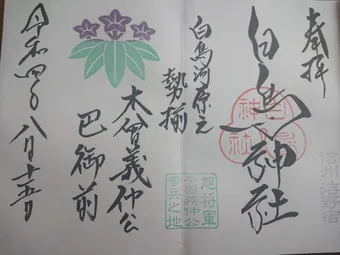 奉拝
信州 海野宿
白鳥神社
白鳥河原之
勢揃
旭将軍
木曽義仲公
挙兵之地
木曽義仲公
巴御前
令和四年八月十五日